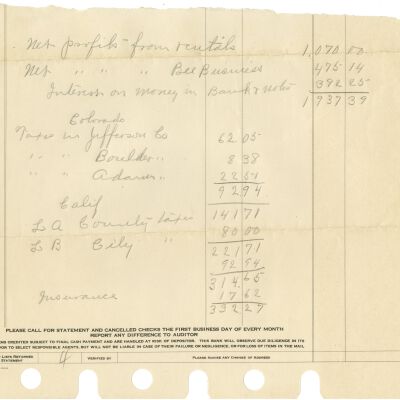 Net profits from rentals 1,070 00
Net " " " Bee Business 475 14
Interest on money in Bank & notes 392 25
1937 39
Colorado
Taxes in Jefferson Co 62 05
" " Boulder " 8 38
" " Adams " 22 51
92 94
Calif
L A County taxes 141 71
L B City " 80 00
221 71
92 94
314 65
Insurance 17 62
332 27
PLEASE CALL FOR STATEMENT AND CANCELLED CHECKS THE FIRST BUSINESS DAY OF EVERY MONTH
REPORT ANY DIFFERENCE TO AUDITOR
CREDITED SUBJECT TO FINAL CASH PAYMENT AND ARE HANDLED AT RISK OF DEPOSITOR. THIS BANK WILL OBSERVE DUE DILIGENCE IN ITS
TO SELECT RESPONSIBLE AGENTS, BUT WILL NOT BE LIABLE IN CASE OF THEIR FAILURE OR NEGLIGENCE, OR FOR LOSS OF ITEMS IN THE MAIL
LISTS RETURNED
STATEMENT 4 VERIFIED BY PLEASE ADVISE ANY CHANGE OF ADDRESS